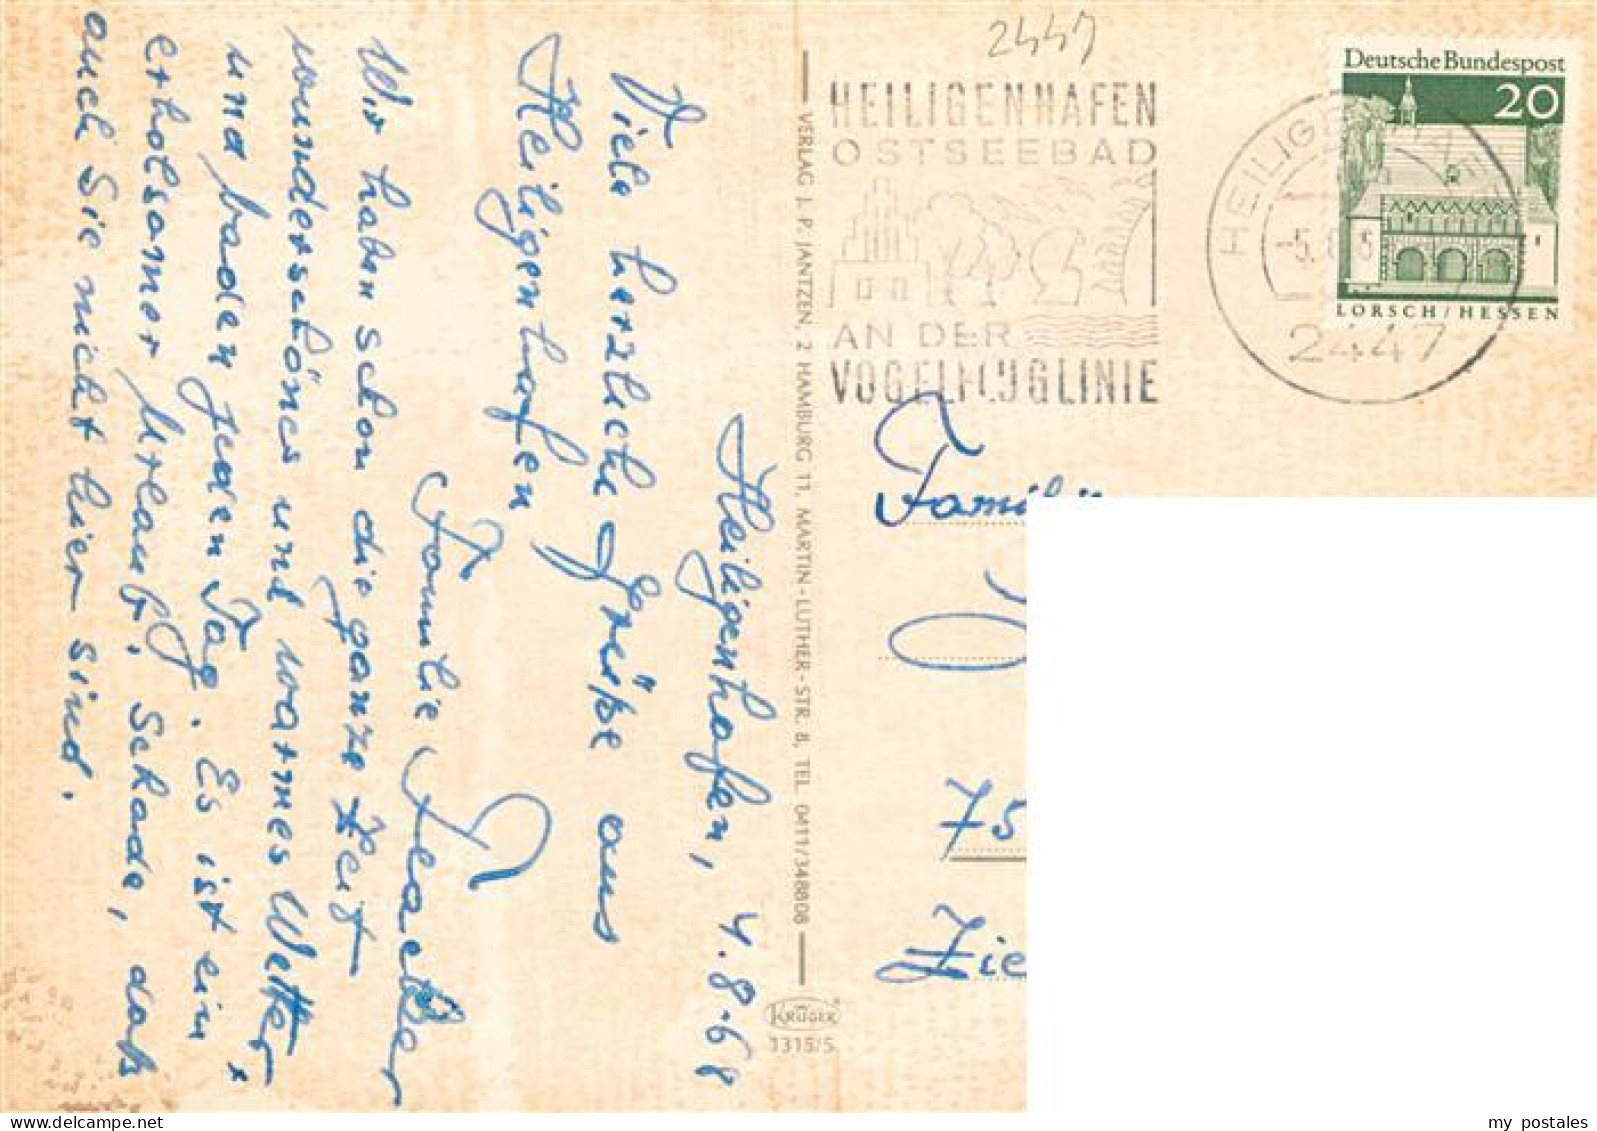 Heiligenhafen, 4.8.68
Viele herzliche Grüße aus
Heiligenhafen
Familie
Wir haben schon die ganze Zeit
wunderschönes und warmes Wetter,
und baden jeden Tag. Es ist ein
erholsamer Urlaub. Schade, daß
auch Sie nicht hier sind.
VERLAG J. P. JANTZEN, 2 HAMBURG 11, MARTIN-LUTHER-STR. 8, TEL. 0411/348808
KRÜGER
1315/5
2447
HEILIGENHAFEN
OSTSEEBAD
AN DER
VOGELFLUGLINIE
HEILIGENHAFEN
-5.8.6
2447
Deutsche Bundespost
20
LORSCH/HESSEN
Familie
75
Zie
my postales